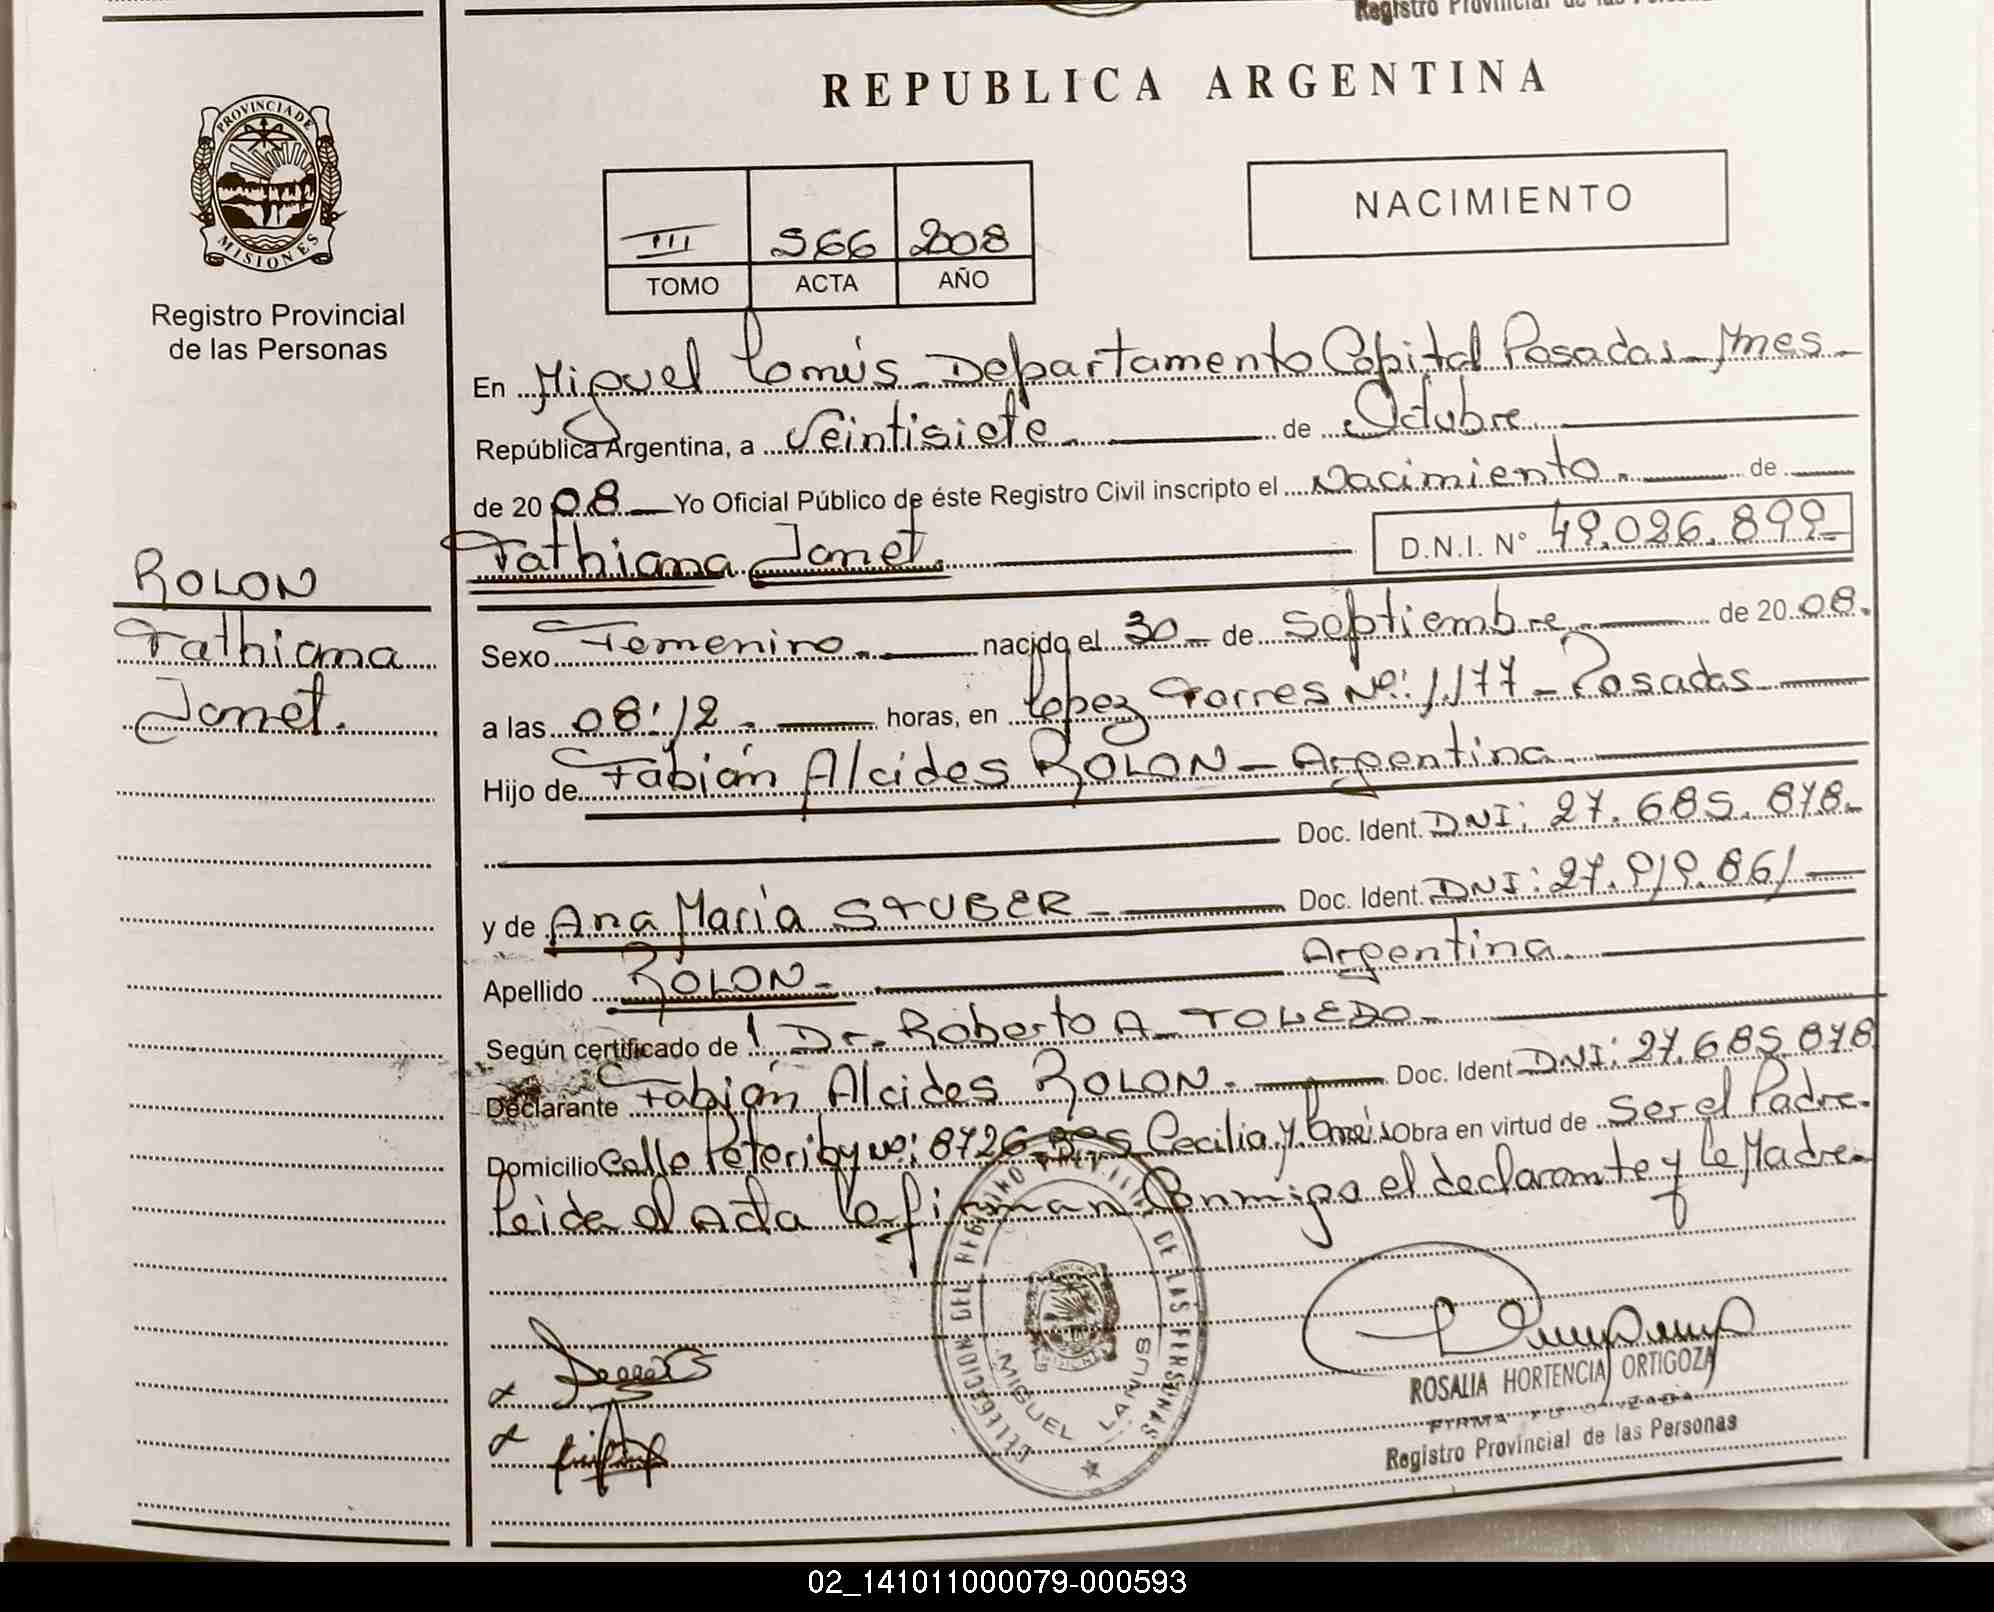 Registro Provincial de las Personas
REPUBLICA ARGENTINA
PROVINCIA DE MISIONES
Registro Provincial
de las Personas
NACIMIENTO
III 566 2008
TOMO ACTA AÑO
En Miguel Lanús - Departamento Capital Posadas - Mnes -
República Argentina, a Veintisiete de Octubre
de 2008 Yo Oficial Público de éste Registro Civil inscripto el Nacimiento. de
Tathiana Janet. D.N.I. N° 49.026.899-
ROLON
Tathiana
Janet.
Sexo Femenino. nacido el 30 - de Septiembre de 2008.
a las 08:12 - horas, en Lopez Torres Nº: 1.177 - Posadas
Hijo de Fabián Alcides ROLON - Argentina
Doc. Ident. DNI: 27.685.878.-
y de Ana María STUBER - Doc. Ident. DNI: 27.919.861
Apellido ROLON - Argentina
Según certificado de: Dr. Roberto A. TOLEDO -
Declarante Fabián Alcides ROLON - Doc. Ident DNI: 27.685.878
Domicilio Calle Peteriby Nº: 8726 Sta Cecilia y Obra en virtud de ser el Padre.
Leida el Acta la firman Conmigo el declarante y la Madre.
DELEGACION DEL REGISTRO PROVINCIAL DE LAS PERSONAS
MIGUEL LANUS
ROSALIA HORTENCIA ORTIGOZA
FIRMA AUTORIZADA
Registro Provincial de las Personas
02_141011000079-000593